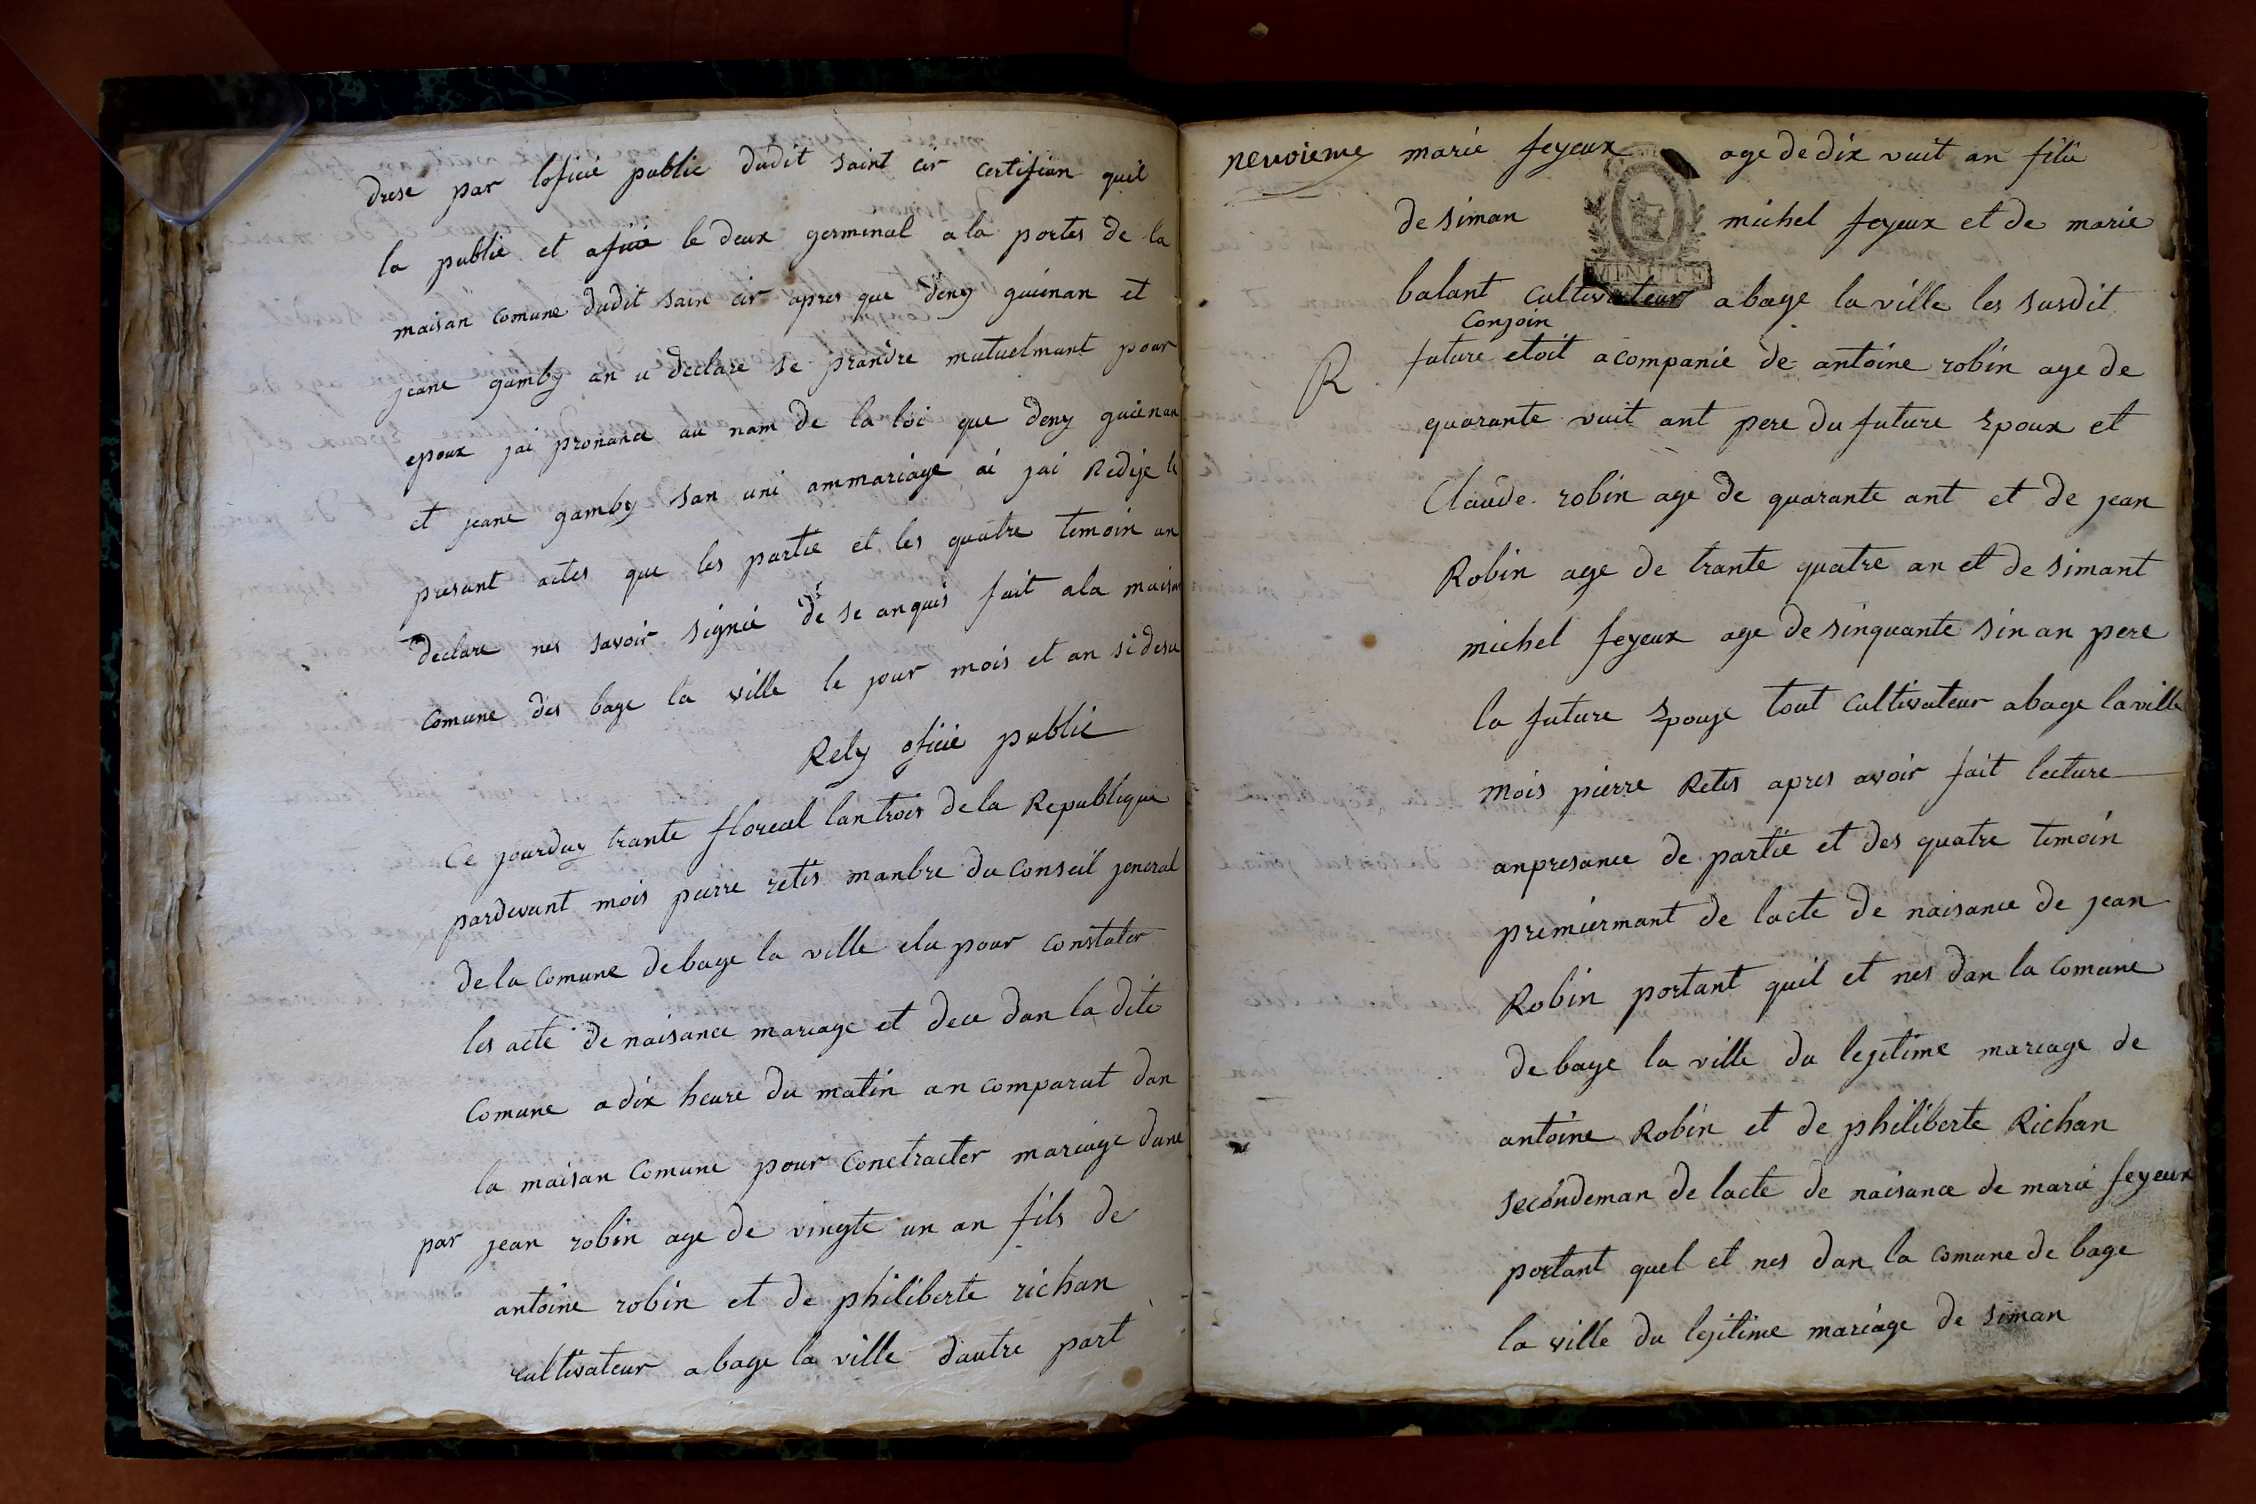 drese par loficié public dudit saint cir certifian quil
la publié et afiiié le deux germinal a la portes de la
maisan comune dudit sain cir apres que deny guienan et
jeane gamby an u declare se prandre mutuelmant pour
epoux jai pronance au nam de la loi que deny guienan
et jeane gamby san uni ammariage ai jai Redije le
presant actes que les partie et les quatre temoin an
declare nes savoir signié de se anquis fait ala maisan
comune des bage la ville le jour mois et an si desu
Rely oficié public
Ce jourduy trante floreal lan trois de la Republique
pardevant mois pierre retis manbre du conseil jeneral
de la comune de bage la ville elu pour constater
les acte de naisance mariage et dece dan la dite
comune a dix heure du matin an comparut dan
la maisan comune pour conctracter mariage dune
par jean robin age de vingte un an fils de
antoine robin et de philiberte richan
cultivateur abage la ville dautre part
neuvieme marie feyeux age de dix vuit an fille
de siman michel feyeux et de marie
MINUTE
balant cultivateur abage la ville les susdit
conjoin
R future etoit acompanie de antoine robin age de
quarante vuit ant pere du future Epoux et
Claude robin age de quarante ant et de jean
Robin age de trante quatre an et de simant
michel feyeux age de sinquante sin an pere
la future Epouse tout cultivateur abage la ville
mois pierre Retis apres avoir fait lecture
anpresance de partie et des quatre temoin
premiermant de lacte de naisance de jean
Robin portant quil et nes dan la comune
de bage la ville du lejitime mariage de
antoine Robin et de philiberte Richan
secondeman de lacte de naisance de marie feyeux
portant quel et nes dan la comune de bage
la ville du lejitime mariage de siman